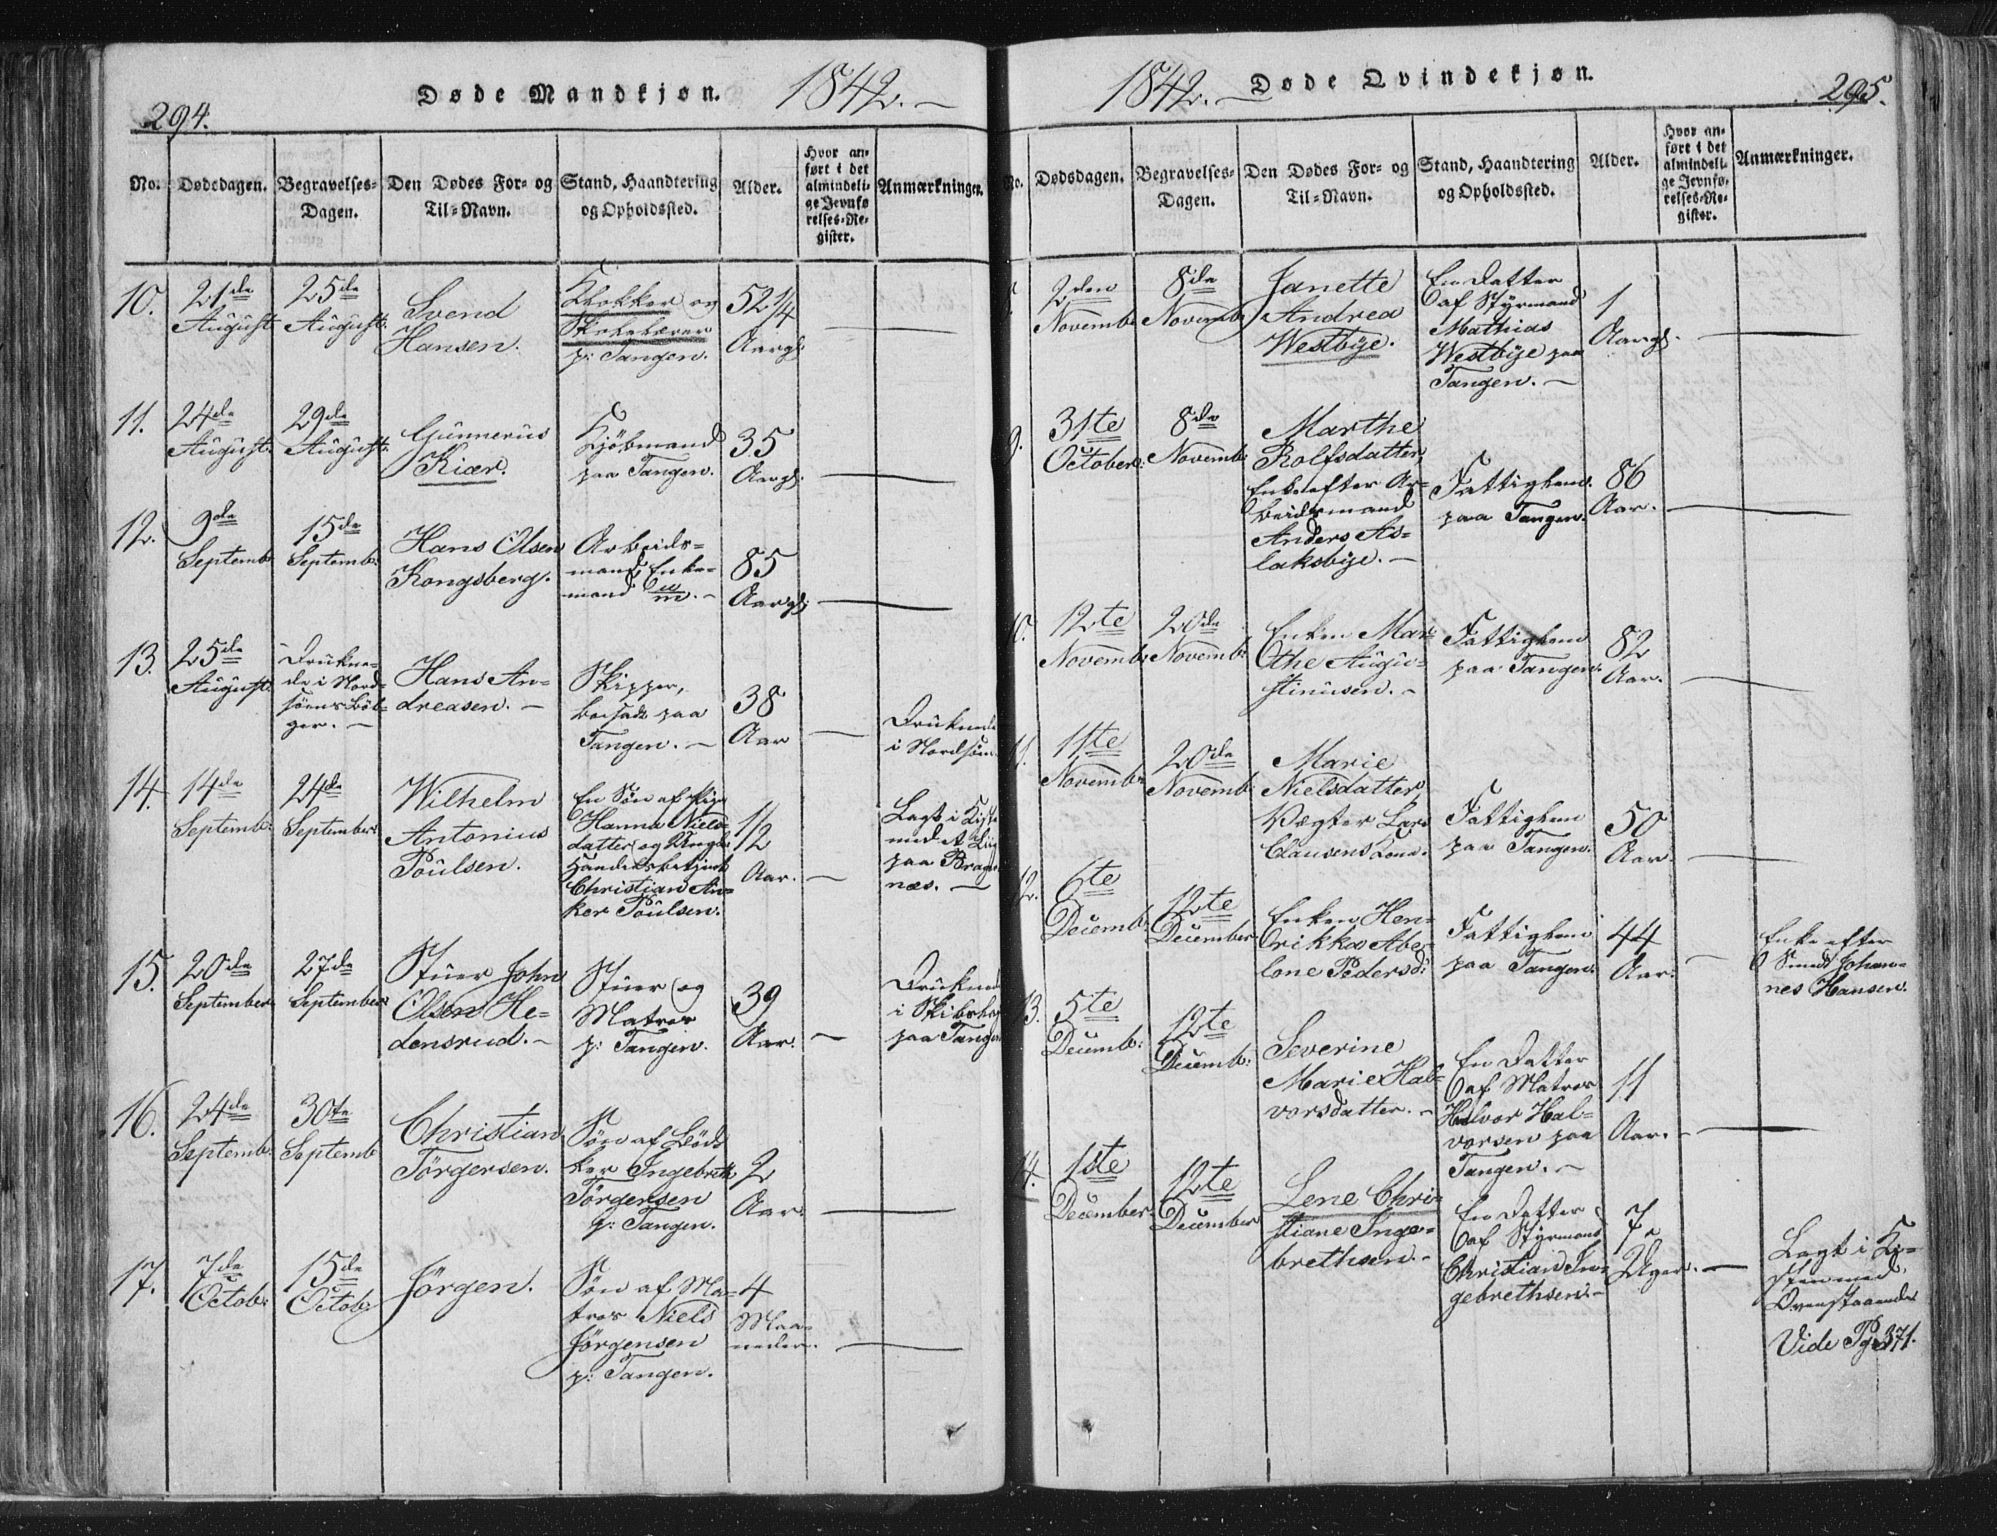 294.
Døde Mandkjøn.
1842.
No.
Dødsdagen.
Begravelses-
Dagen.
Den Dødes For- og
Til-Navn.
Stand, Haandtering
og Opholdssted.
Alder.
Hvor an-
ført i det
almindeli-
ge Jevnfø
relses-Re-
gister.
Anmærkninger.
10.
21de
August
25de
August:
Svend
Hansen.
Klokker og
Skolelærer
p: Tangen.
52 1/4
Aargl:
11.
24de
August:
29de
August:
Gunnerius
Kiær.
Kjøbmand
paa Tangen.
35
Aargl:
12.
9de
Septemb:
15de
Septemb:
Hans Olsen
Kongsberg.
Arbeids-
mand, Enke-
mand
85
Aargl:
13.
25de
August:
Drukne-
de i Nord-
søens Böl-
ger.
Hans An-
dreasen.
Skipper,
bosadt paa
Tangen.
38
Aar
Druknede
i Nordsøen
14.
14de
Septemb:
24de
September:
Wilhelm
Antonius
Poulsen.
En Søn af Pige
Hanna Niels-
datter og Ungk:
Handelsbetjent
Christian An-
ker Poulsen.
1/2
Aar.
Lagt i Kiste
med et Liig
paa Brager
næs.
15.
20de
September
27de
September
Stuer John
Olsen He-
densrud.
Stuer og
Matros
p: Tangen.
39
Aar.
Druknede
i Skibshav
paa Tangen
16.
24de
Septemb:
30te
Septemb
Christian
Törgersen.
Søn af Bød-
ker Ingebreth
Törgersen
p: Tangen.
2
Aar.
17.
7de
Octob:
15de
Octob:
Jörgen.
Søn af Ma-
tros Niels
Jörgensen
p: Tangen.
4
Maa-
neder.
1842.
Døde Qvindekjøn.
295.
No.
Dødsdagen.
Begravelses-
Dagen.
Den Dødes For- og
Til-Navn.
Stand, Haandtering
og Opholdssted.
Alder.
Hvor an-
ført i det
almindeli-
ge Jevnfø-
relses-Re-
gister.
Anmærkninger.
2den
Novemb:
8de
Novemb:
Janette
Andrea
Westbye.
En Datter
af Styrmand
Mathias
Westbye paa
Tangen.
1
Aargl.
9.
31te
October:
8de
Novemb:
Marthe
Rolfsdatter,
Enke efter Ar-
beidsmand
Anders As-
laksbye.
Fattiglem
paa Tangen.
86
Aar.
10.
12te
Novemb:
20de
Novemb:
Enken Mar-
the Augu-
stinusen.
Fattiglem
paa Tangen.
82
Aar.
11.
11te
Novemb:
20de
Novemb:
Marie
Nielsdatter,
Vægter Lars
Clausens Kone.
Fattiglem
paa Tangen.
50
Aar.
12.
6te
Decemb:
12te
December.
Enken Hen-
rikka Abe-
lone Pedersd:
Fattiglem
paa Tangen.
44
Aar.
Enke efter
Smed Johan-
nes Hansen.
13.
5te
Decemb:
12te
Decemb:
Severine
Marie Hal-
vorsdatter.
En Datter
af Matros
Halvor Hal-
vorsen paa
Tangen.
11
Aar.
14.
1ste
December.
12te
December
Lene Chri-
stiane Inge-
brethsen.
En Datter
af Styrmand
Christian In-
gebrethsen.
7
Uger.
Lagt i Ki-
sten med
Ovenstaaende
Vide Pg 371.